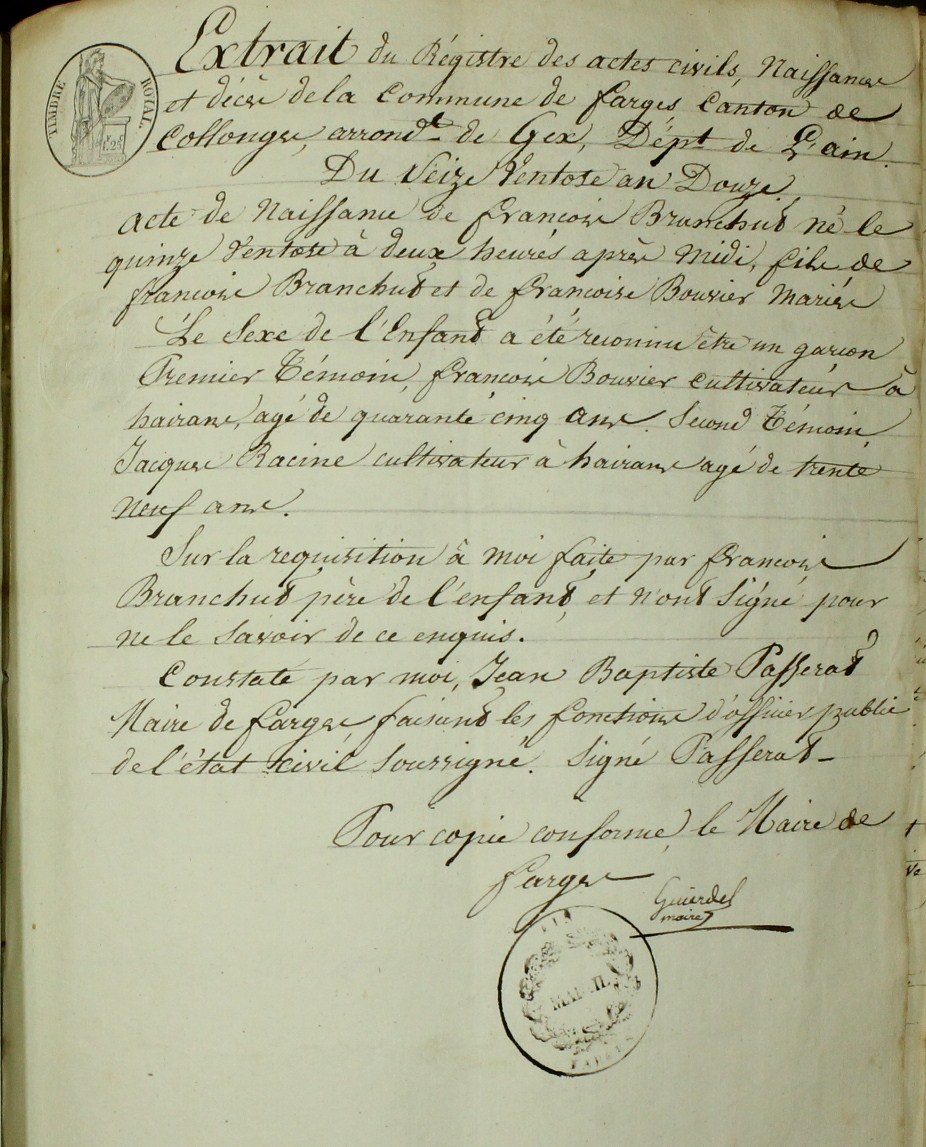 TIMBRE ROYAL
1F.25
Extrait du Régistre des actes civils, Naissances
et décès de la Commune de farges, Canton de
Collonges, arrondt de Gex, Dépt de L'ain.
Du Seize Ventose an Douze,
acte de Naissance de françois Branchut né le
quinze Ventose à deux heures après Midi, fils de
françois Branchut et de francoise Bouvier Mariés
Le Sexe de l'Enfant a été reconnu être un garcon
Premier Témoin, francois Bouvier cultivateur à
hairans, agé de quarante cinq ans. Second Témoin
Jacques Racine cultivateur à hairans agé de trente
neuf ans.
Sur la requisition à moi faite par francois
Branchut père de l'enfant, et n'ont Signé pour
ne le savoir de ce enquis.
Constaté par moi, Jean Baptiste Passerat
Maire de farges, faisant les fonctions d'officier public
de l'état civil soussigné. Signé Passerat
Pour copie conforme, le Maire de
farges
maire
AIN
MAIRIE
FARGES